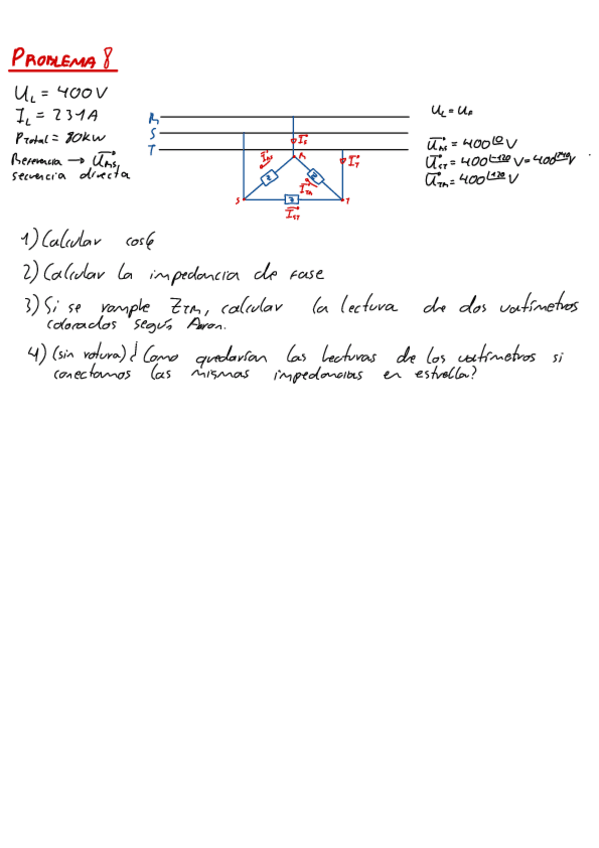 PROBLEMA 8
U_L = 400V
I_L = 231A
P_Total = 80kW
Referencia → U_RS,
secuencia directa
R
S
T
I_RS
R
I_T
Z
Z
I_TR
S
Z
T
I_ST
U_L = U_F
U_RS = 400∠0 V
U_ST = 400∠-120 V = 400∠240 V
U_TR = 400∠120 V
1) Calcular cosφ
2) Calcular la impedancia de fase
3) Si se rompe Z_TR, calcular la lectura de dos vatímetros
colocados según Aron.
4) (sin rotura) ¿Como quedarían las lecturas de los vatímetros si
conectamos las mismas impedancias en estrella?